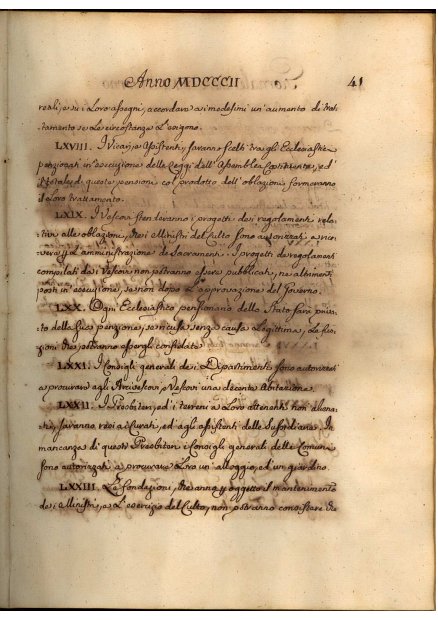 Anno MDCCCII 41
reali, e su i Loro assegni, accordare ai medesimi un' aumento di trat-
tamento se Le circostanze L'esigono.
LXVIII. I Vicarj, e Assistenti saranno scelti tra gli Ecclesiastici
penzionati in esecuzione delle Leggi dell' Assemblea Costituente, ed
Totale di queste pensioni col prodotto dell' oblazioni formeranno
il loro trattamento.
LXIX. I Vescovi stenderanno i progetti dei regolamenti rela-
tivi alle oblazioni, che i Ministri del Culto sono autorizzati a rice-
vere p L'amministrazione de Sacramenti. I progetti de regolamenti
compilati dai Vescovi non potranno essere pubblicati, ne altrimenti
posti in esecuzione, se non dopo L'approvazione del Governo.
LXX. Ogni Ecclesiastico pensionario dello Stato sarà privi-
to della sua penzione, se ricusa senza causa Legittima, Le fun-
zioni che potranno essergli confidate.
LXXI. I Consigli generali dei Dipartimenti sono autorizzati
a procurare agli Arcivescovi, e Vescovi una decente Abitazione.
LXXII. I Presbiteri, ed i terreni a Loro attenenti non aliena-
ti, saranno resi ai Curati, ed agli assistenti delle Suffordiane. In
mancanza di questi Presbiteri i Consigli generali delle Comuni
sono autorizzati a procurare Loro un' alloggio, ed un giardino.
LXXIII. Le fondazioni, che anno p oggetto il mantenimento
dei Ministri, e L'esercizio del Culto, non potranno consistere che